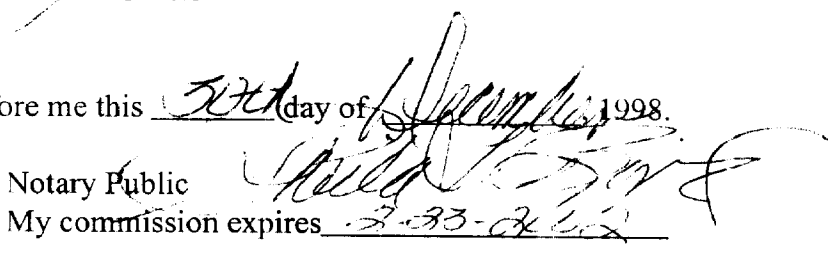 ore me this 30th day of December, 1998.
Notary Public
My commission expires 2-23-2002